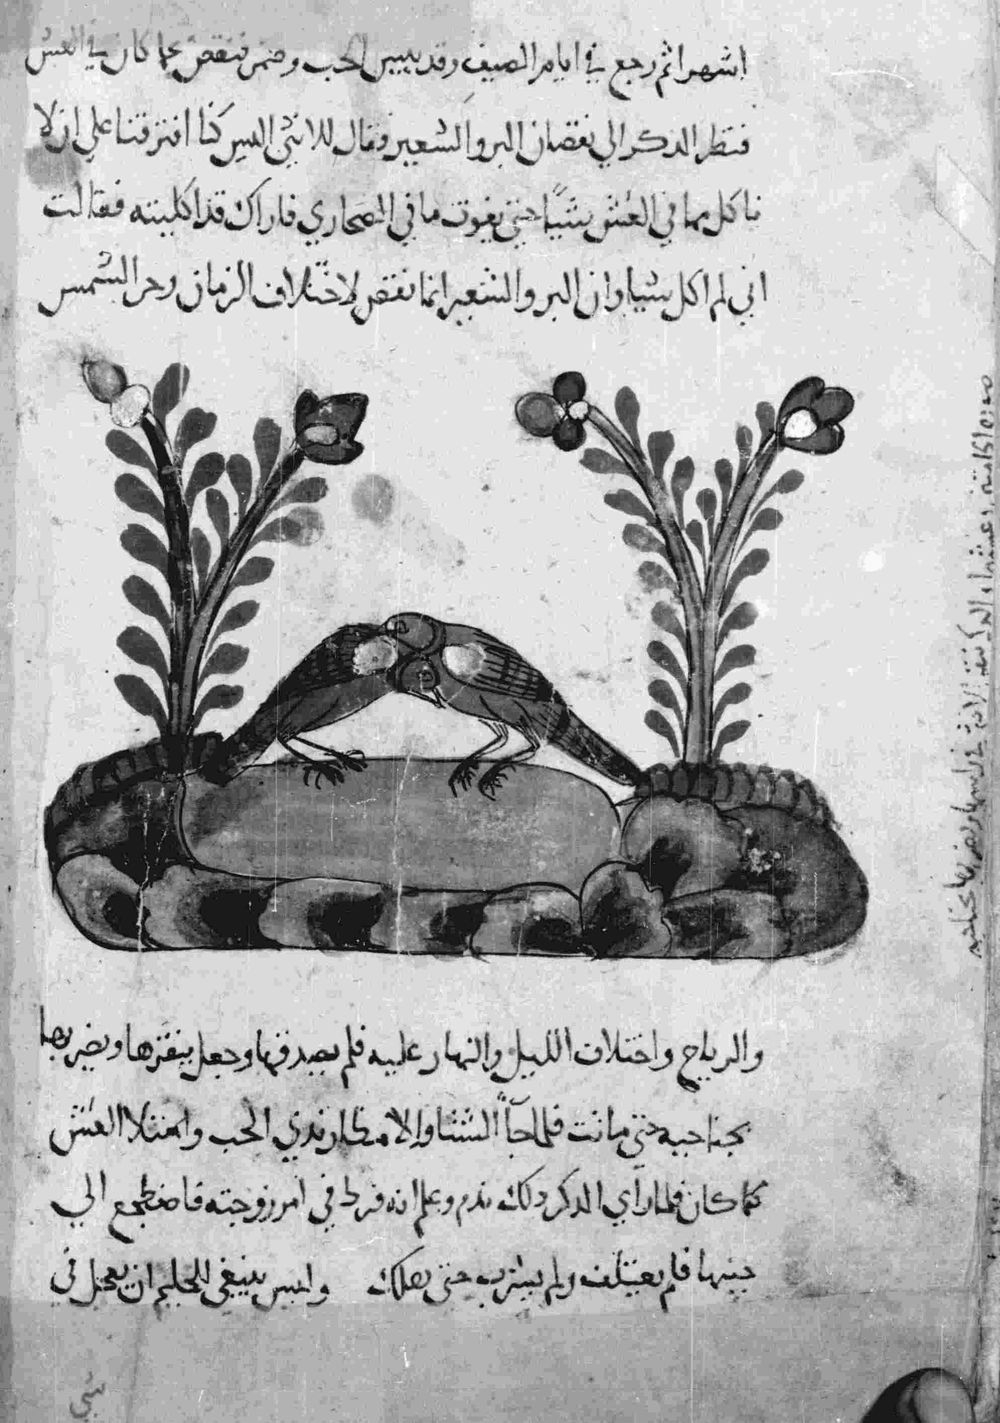 اشهر اثم رجع في ايام الصيف وقد يبس الحب وضمر فنقص عما كان في العش
فنظر الدكر الي نقصان البر والشعير فقال للانثي اليس كنا افترقنا علي ان لا
ناكل مما في العش شيًا حتي يفوت ما في الصحاري فاراك قد اكلتيه فقالت
اني لم اكل شيا وان البر والشعير انما نقص لاختلاف الزمان وحر الشمس
والرياح واختلاف الليل والنهار عليه فلم يصدقها وجعل ينقرها ويضربها
بجناحيه حتي ماتت فلما جآ الشتا والامطار ندي الحب وامتلا العش
كما كان فلما رآي الدكر دلك ندم وعلم انه فرط في امر زوجته فاضطجع الي
جنبها فلم يعتلف ولم يشرب حتي هلك وليس ينبغي للحليم ان يعجل في
شي